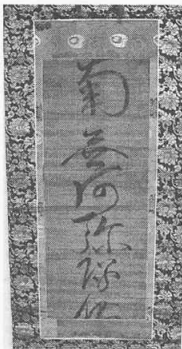 南无阿弥陀仏